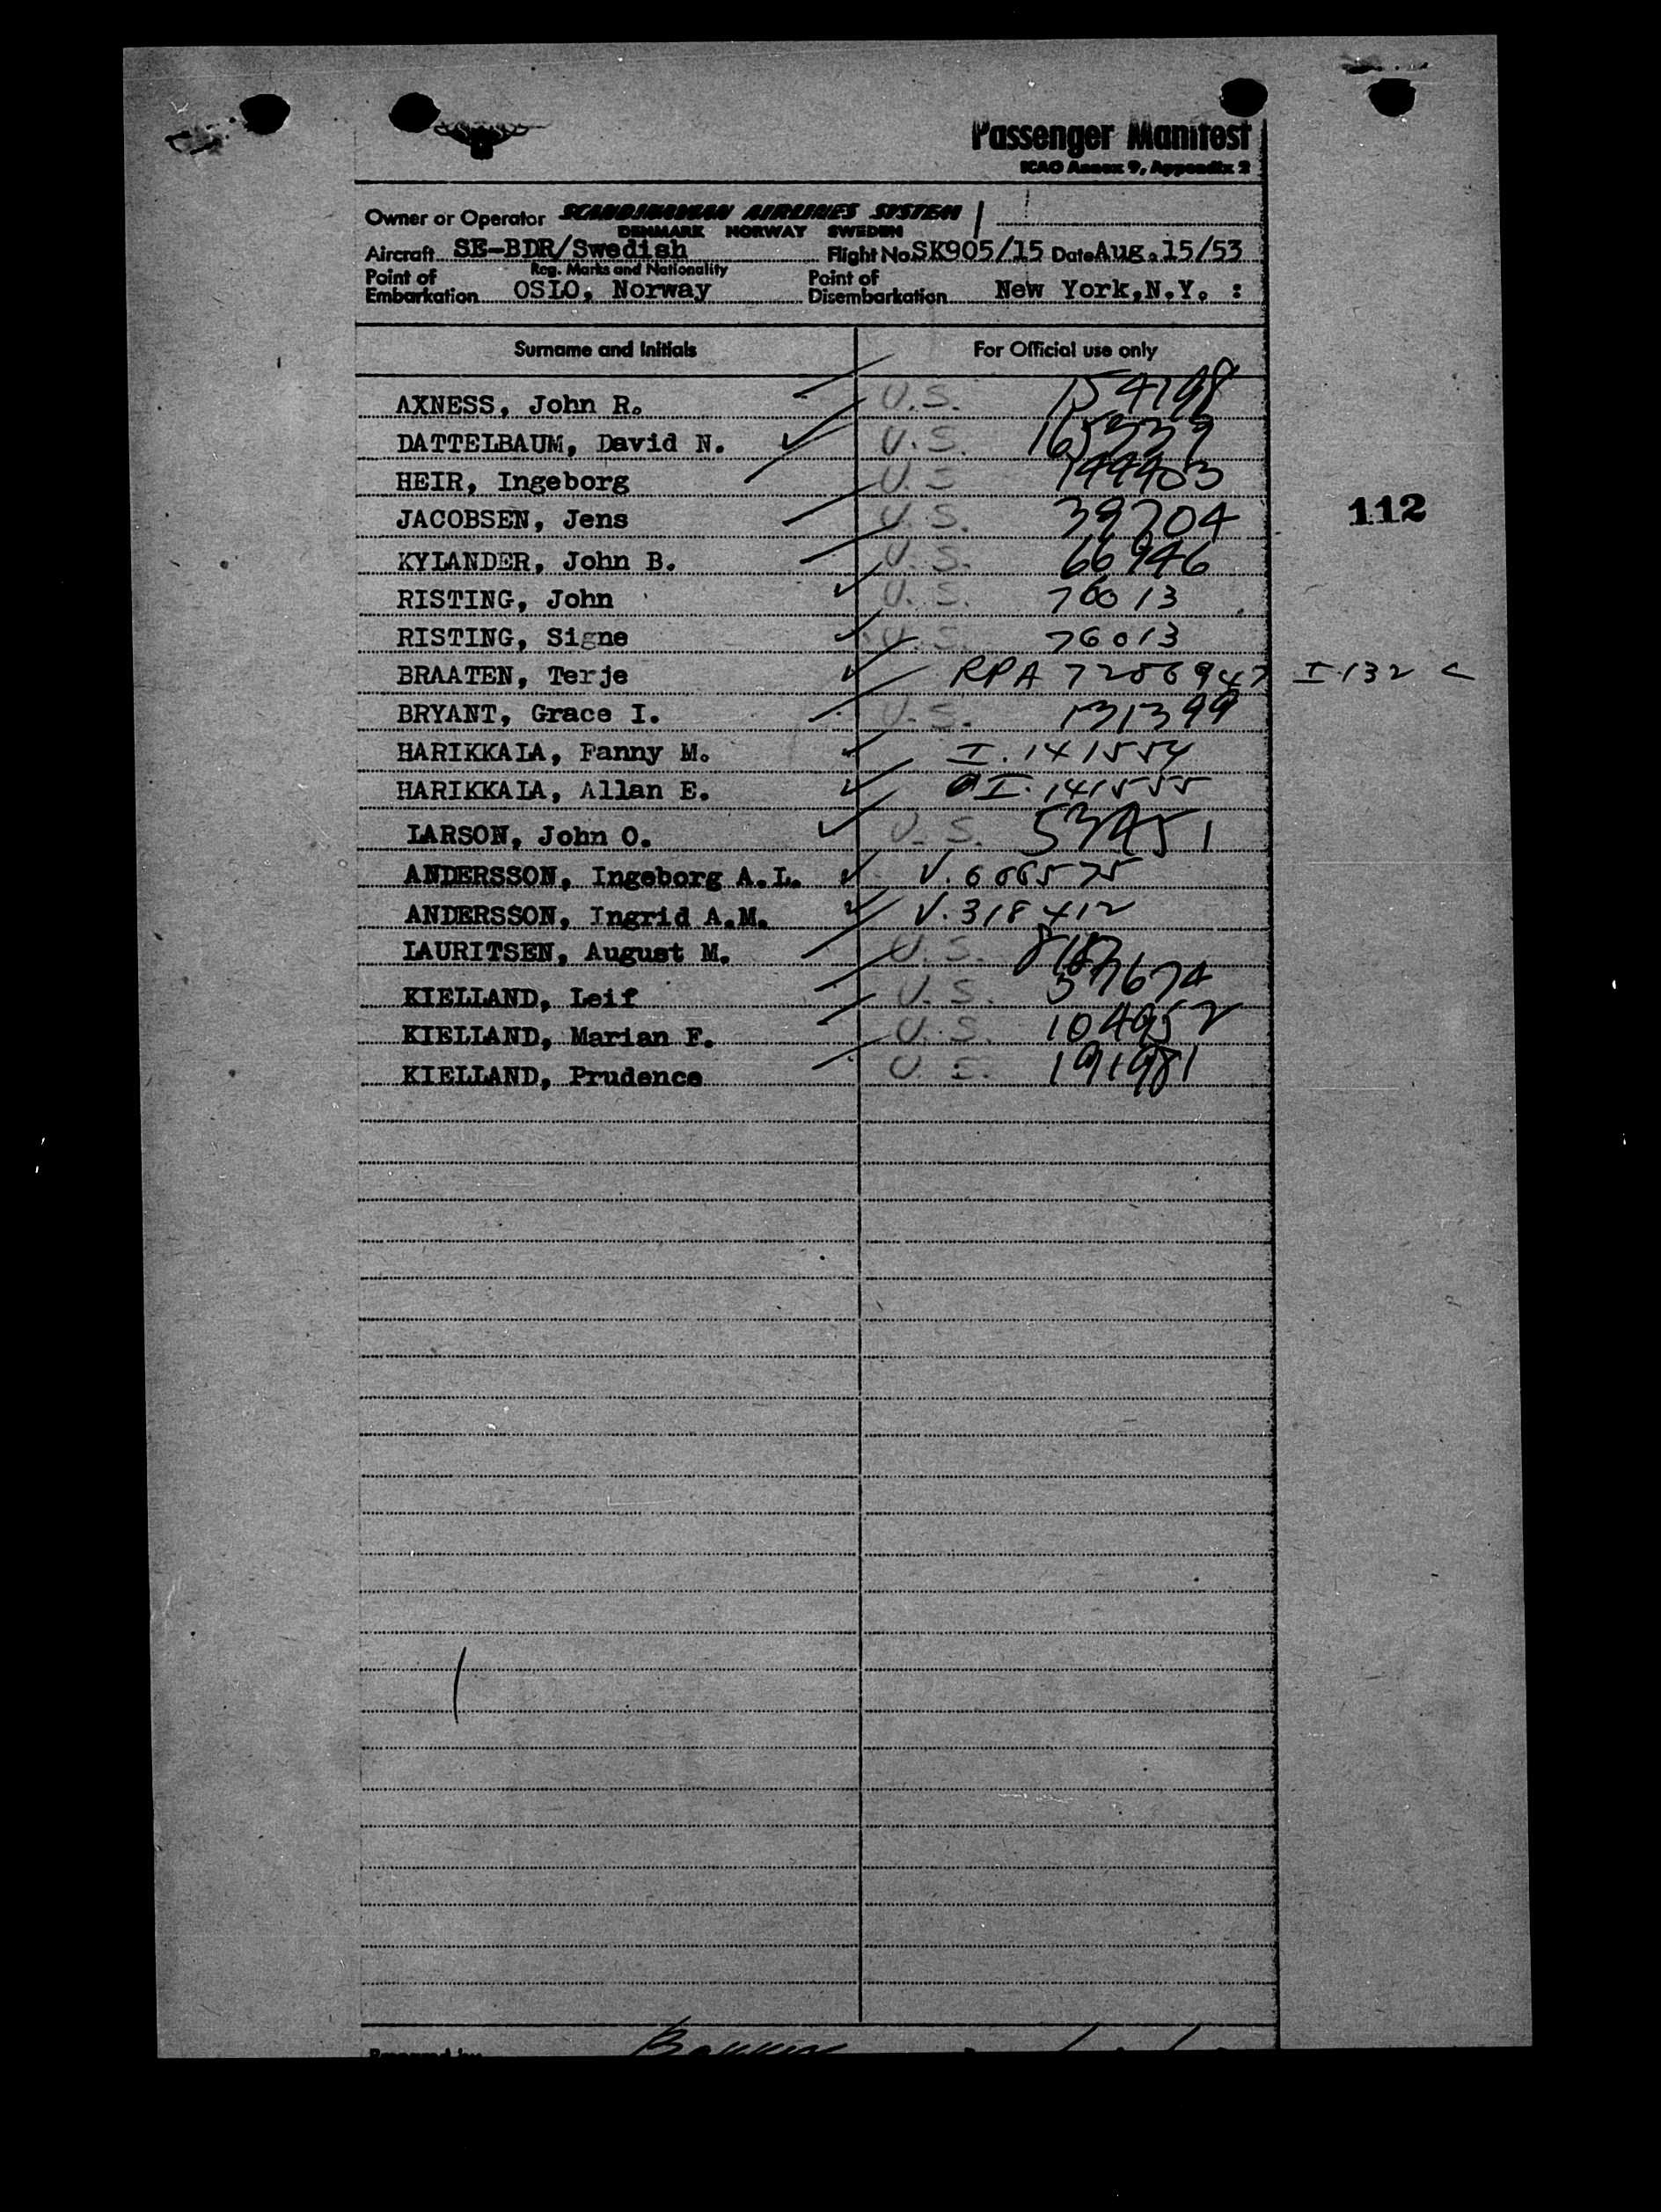 Passenger Manifest
ICAO Annex 9, Appendix 2
Owner or Operator SCANDINAVIAN AIRLINES SYSTEM
DENMARK NORWAY SWEDEN
Aircraft SE-BDR/Swedish Flight No SK905/15 Date Aug.15/53
Reg. Marks and Nationality
Point of Embarkation OSLO, Norway Point of Disembarkation New York,N.Y. :
Surname and Initials For Official use only
AXNESS, John R. U.S. 154198
DATTELBAUM, David N. U.S. 165339
HEIR, Ingeborg U.S
JACOBSEN, Jens U.S. 39704
112
KYLANDER, John B. U.S. 66946
RISTING, John U.S. 76013
RISTING, Signe U.S. 76013
BRAATEN, Terje RPA 7206947 I-132
BRYANT, Grace I. U.S. 131399
HARIKKALA, Fanny M. I.141554
HARIKKALA, Allan E. I.141555
LARSON, John O. U.S. 53451
ANDERSSON, Ingeborg A.L. V.606575
ANDERSSON, Ingrid A.M. V.318412
LAURITSEN, August M. U.S.
KIELLAND, Leif U.S. 37674
KIELLAND, Marian F. U.S. 104952
KIELLAND, Prudence U.S. 191981